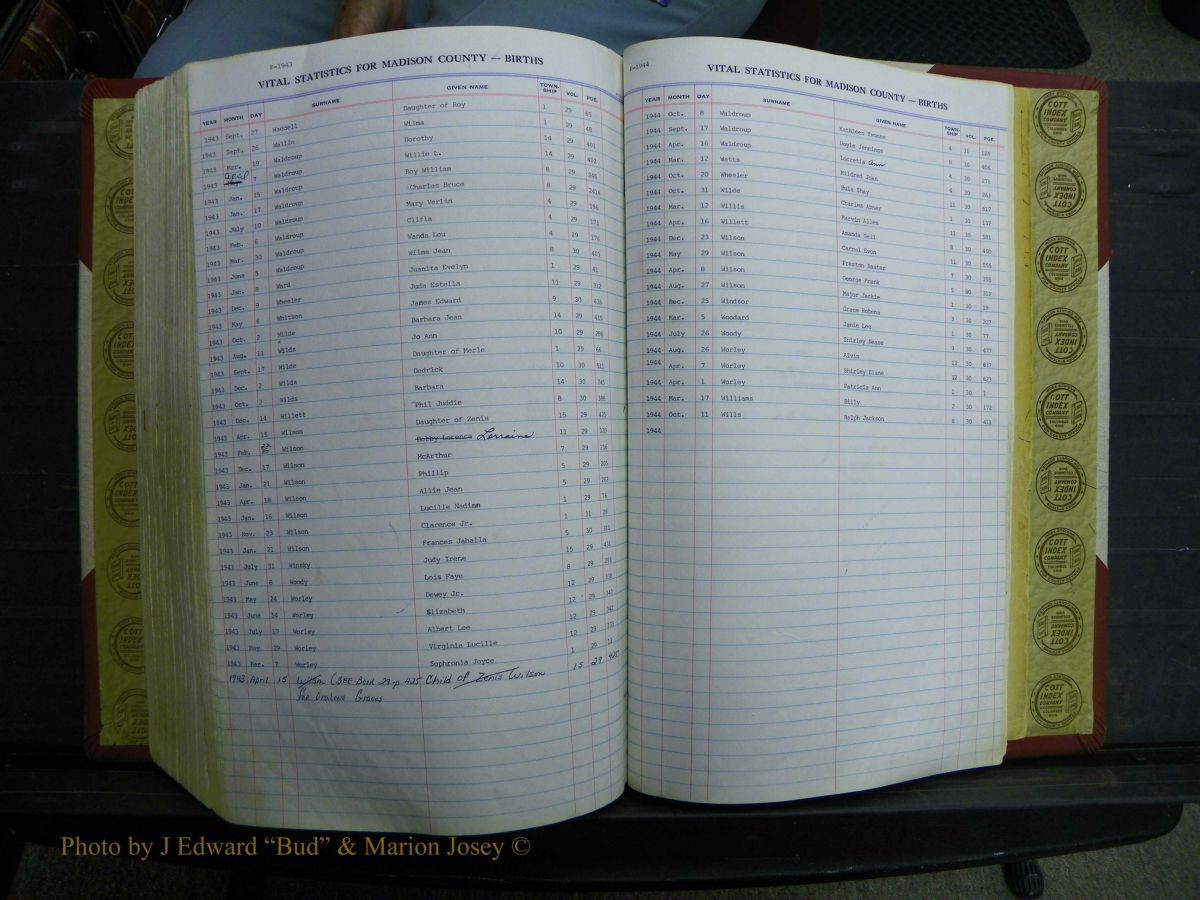 P-1943
VITAL STATISTICS FOR MADISON COUNTY — BIRTHS
YEAR MONTH DAY SURNAME GIVEN NAME TOWN-SHIP VOL. PGE.
1943 Sept. 27 Waddell Daughter of Roy 1 29 65
1943 Sept. 26 Wallin Wilma 1 29 48
1943 Mar. 19 Waldroup Dorothy 14 29 401
1943 April 7 Waldroup Willie L. 14 29 402
1943 Jan. 15 Waldroup Roy William 8 29
1943 Jan. 17 Waldroup Charles Bruce 8 29 241A
1943 July 10 Waldroup Mary Verlin 4 29 196
1943 Feb. 6 Waldroup Clifla 4 29 173
1943 Mar. 30 Waldroup Wanda Lou 4 29 176
1943 June 5 Waldroup Wilma Jean 8 30 403
1943 Jan. 8 Ward Juanita Evelyn 1 29 41
1943 Dec. 9 Wheeler Juda Estella 11 29 312
1943 May 4 Whitson James Edward 9 30 436
1943 Oct. 2 Wilde Barbara Jean 14 29 415
1943 Aug. 11 Wilds Jo Ann 10 29 286
1943 Sept. 17 Wilde Daughter of Merle 1 29 66
1943 Dec. 2 Wilds Dedrick 10 30 511
1943 Oct. 2 Wilds Barbara 14 30 745
1943 Dec. 14 Willett Phil Juddie 8 30 386
1943 Apr. 15 Wilson Daughter of Zenis 15 29 425
1943 Feb. 22 Wilson Bobby Lorence Lorraine 11 29 320
1943 Dec. 17 Wilson McArthur 7 29 216
1943 Jan. 21 Wilson Phillip 5 29 205
1943 Apr. 18 Wilson Allie Jean 5 29 207
1943 Jan. 16 Wilson Lucille Nadine 1 29 76
1943 Nov. 23 Wilson Clarence Jr. 1 31 28
1943 Jan. 21 Wilson Frances Jahalla 5 30 311
1943 July 31 Winsky Judy Irene 15 29 431
1943 June 6 Woody Lois Faye 8 29 251
1943 May 24 Worley Dewey Jr. 12 29 338
1943 June 14 Worley Elizabeth 12 29 343
1943 July 17 Worley Albert Lee 12 29 342
1943 May 29 Worley Virginia Lucille 12 29 333
1943 Mar. 7 Worley Sophronia Joyce 1 29 11
1943 April 15 Wilson (SEE Book 29-p. 425 Child of Zenis Wilson 15 29 425
Per Graves
P-1944
VITAL STATISTICS FOR MADISON COUNTY — BIRTHS
YEAR MONTH DAY SURNAME GIVEN NAME TOWN-SHIP VOL. PGE.
1944 Oct. 8 Waldroup Kathleen Yvonne 4 31 128
1944 Sept. 17 Waldroup Doyle Jennings 8 30 406
1944 Apr. 16 Waldroup Lucretia Ann 4 30 271
1944 Mar. 12 Watts Mildred Joan 4 30 263
1944 Oct. 20 Wheeler Eula Shay 11 30 617
1944 Oct. 31 Wilde Charles Abner 1 30 137
1944 Mar. 12 Willis Marvin Allen 11 30 581
1944 Apr. 16 Willett Amanda Gail 8 30 400
1944 Dec. 23 Wilson Carrol Evon 11 30 555
1944 May 29 Wilson Preston Baxter 7 30 355
1944 Apr. 8 Wilson George Frank 5 30 312
1944 Aug. 27 Wilson Major Jackie 1 30 19
1944 Dec. 25 Windsor Grace Robena 3 30 227
1944 Mar. 5 Woodard Janie Lee 1 30 77
1944 July 26 Woody Shirley Nease 9 30 477
1944 Aug. 26 Worley Alvin 12 30 637
1944 Apr. 7 Worley Shirley Elane 12 30 623
1944 Apr. 1 Worley Patricia Ann 1 30 1
1944 Mar. 17 Williams Billy 2 30 172
1944 Oct. 11 Wills Ralph Jackson 8 30 413
1944
COTT INDEX COMPANY
Photo by J Edward “Bud” & Marion Josey ©